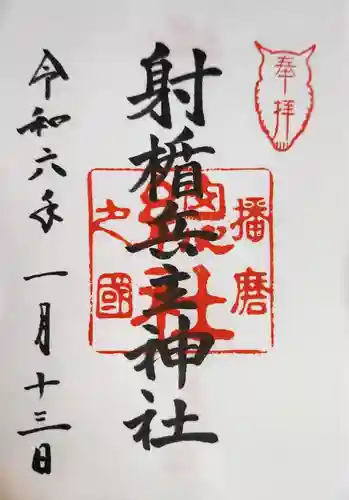 奉拝
射楯兵主神社
播磨
之國
令和六年 一月十三日